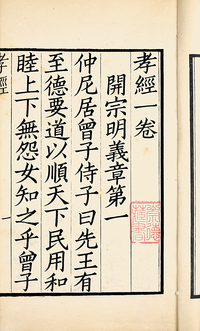 孝經一卷
開宗明義章第一
仲尼居曾子侍子曰先王有
至德要道以順天下民用和
睦上下無怨女知之乎曾子
孝經
一